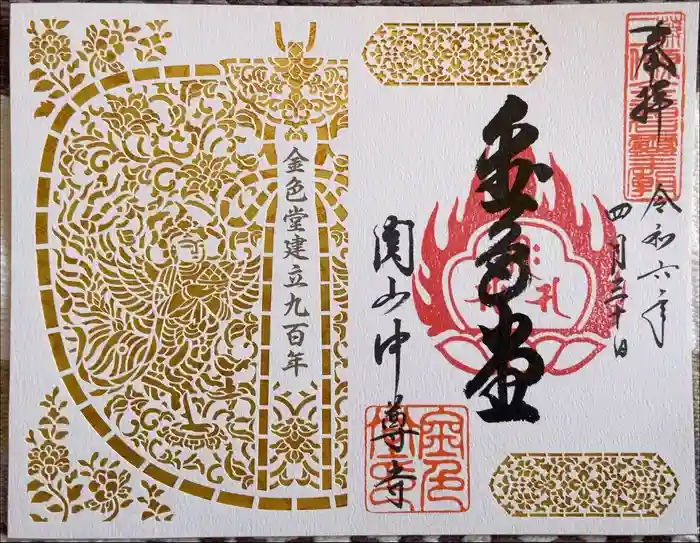 奉拝
令和六年
四月三十日
金色堂
関山中尊寺
金色堂
金色堂建立九百年